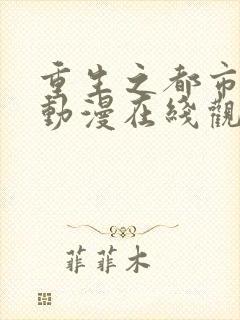 重生之都市
動漫在綫觀
菲菲木